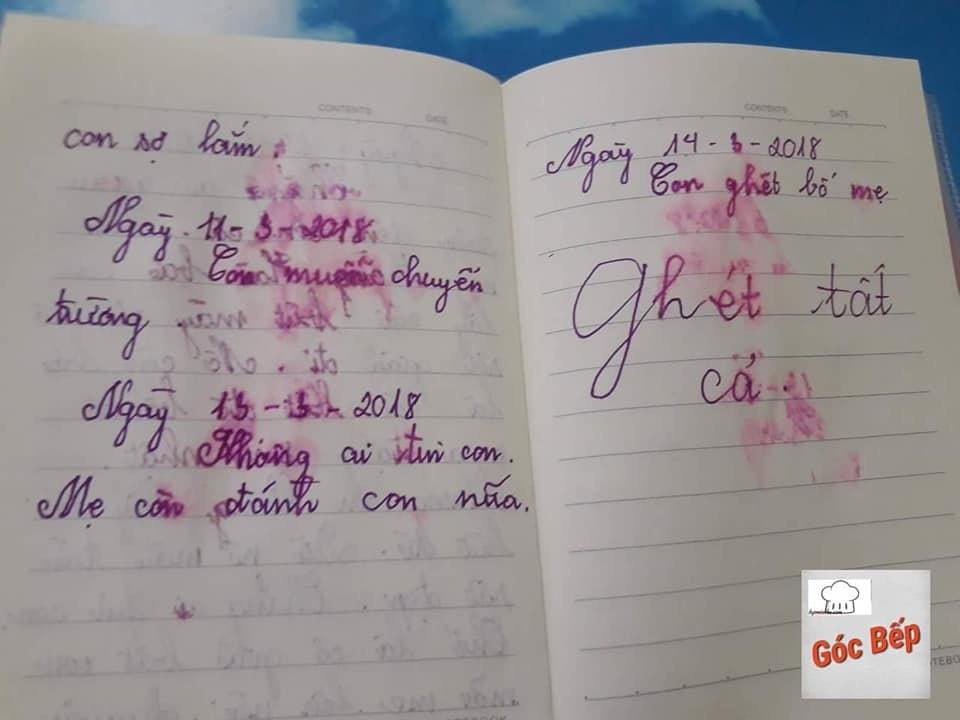 CONTENTS
DATE
con sợ lắm.
Ngày 11-3-2018
Con muốn chuyển
trường
Ngày 13-3-2018
Không ai tin con.
Mẹ còn đánh con nữa.
CONTENTS
DATE
Ngày 14-3-2018
Con ghét bố mẹ
Ghét tất
cả.
Góc Bếp